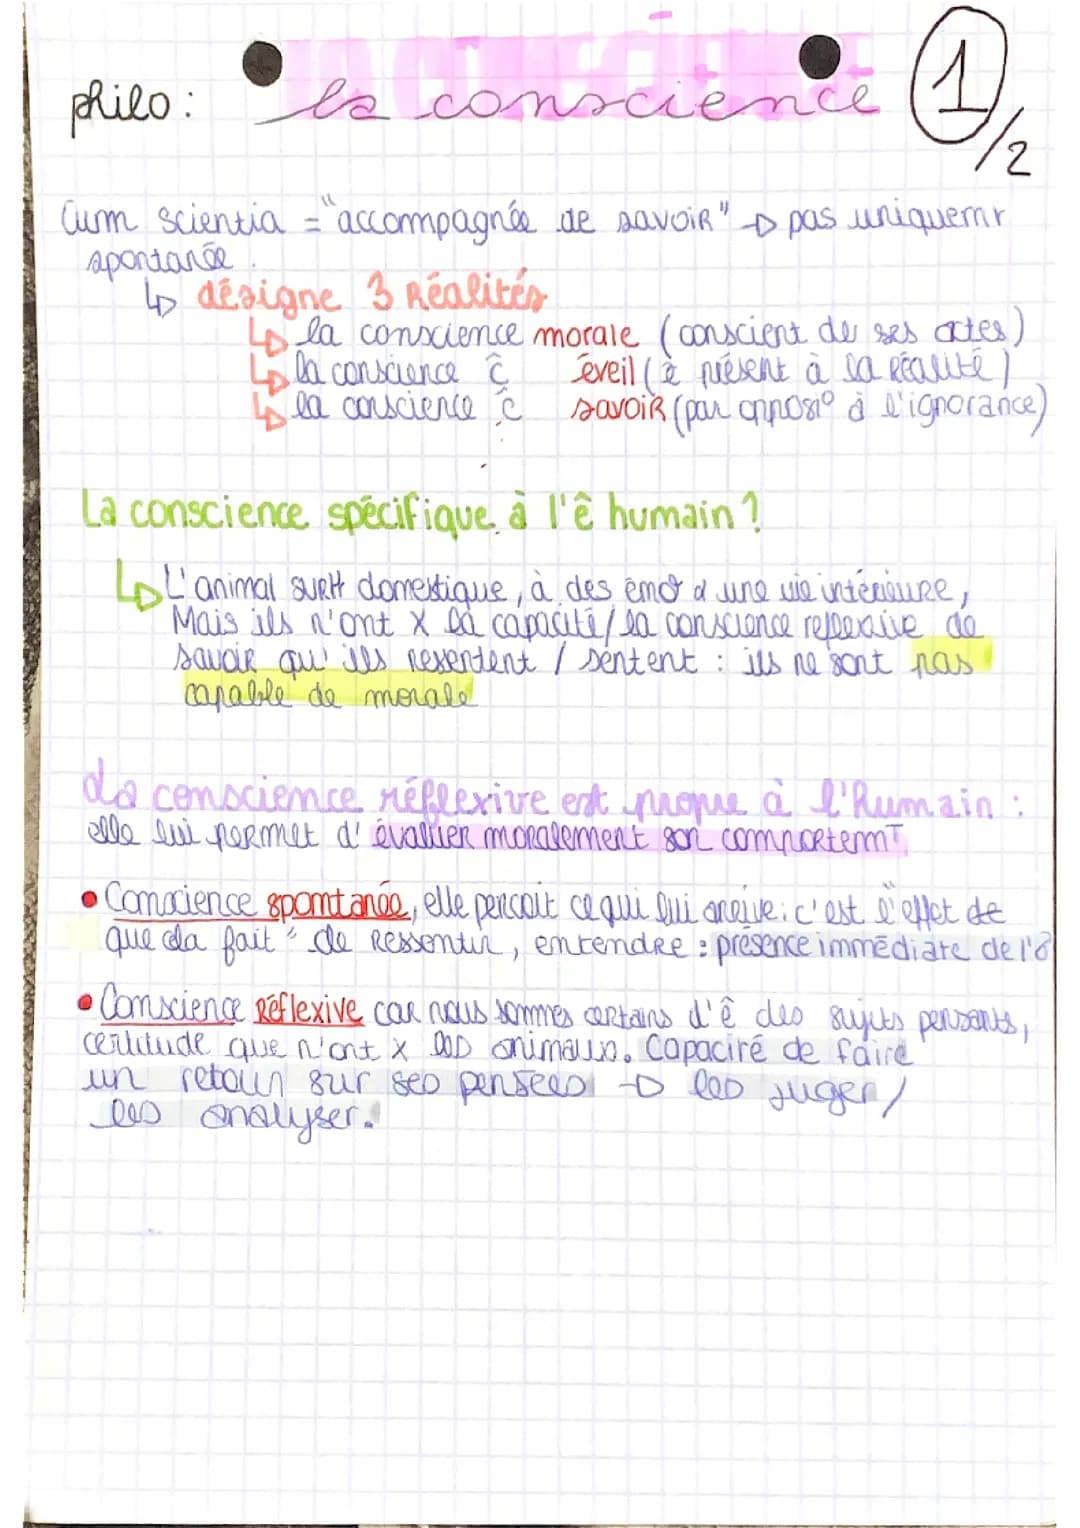 philo : la conscience 1/2
Cum scientia = "accompagnée de savoir" → pas uniquemt
spontanée.
↳ désigne 3 Réalités
↳ la conscience morale (conscient de ses actes)
↳ la conscience ĉ éveil (ê présent à la réalité)
↳ la conscience ĉ savoir (par opposi° à l'ignorance)
La conscience spécifique à l'ê humain ?
↳ L'animal surtt domestique, à des émo° d une vie intérieure,
Mais ils n'ont x la capacité / la conscience reflexive de
savoir qu'ils resentent / sentent : ils ne sont pas
capable de morale
La conscience réflexive est propre à l'humain :
elle lui permet d'évaluer moralement son comportemt
• Conscience spontanée, elle perçoit ce qui lui arrive : c'est l'"effet de
que cela fait" de Ressentir, entendre : présence immédiate de l'
• Conscience Réflexive car nous sommes certains d'ê des sujets pensants,
certitude que n'ont x les animaux. Capacité de faire
un retour sur ses pensées → les juger /
les analyser.